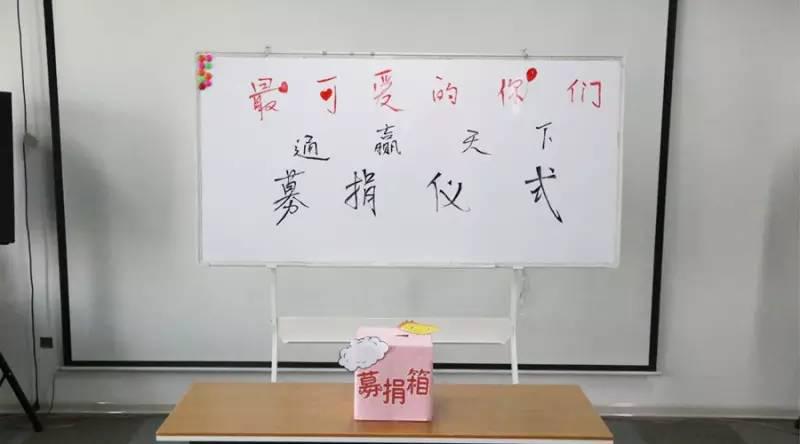 最可爱的你们
通赢天下
募捐仪式
募捐箱